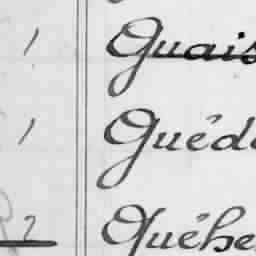 1 Guais
1 Guéd
2 Guéhe